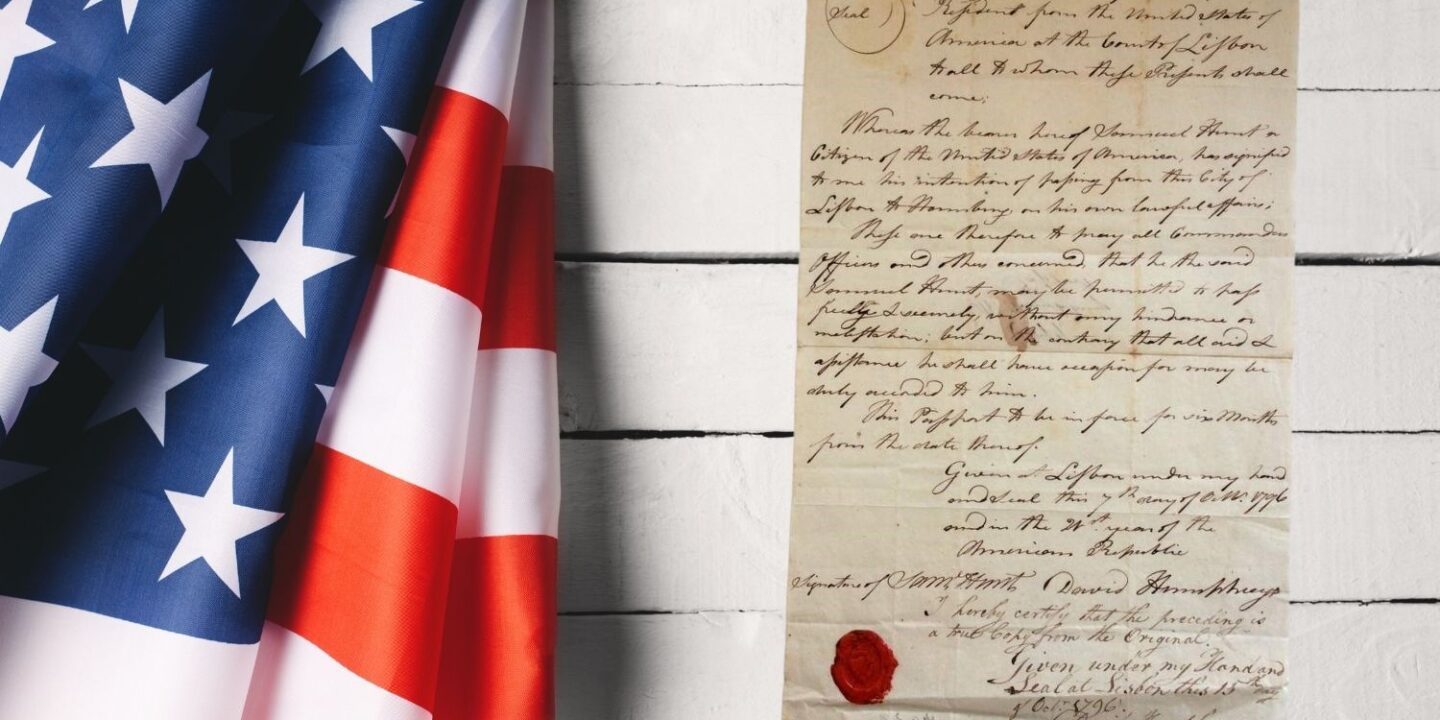 Seal
Resident from the United States of
America at the Court of Lisbon
to all to whom these Presents shall
come;
Whereas the bearer hereof Sammuel Hunt a
Citizen of the United States of America, has signified
to me his intention of passing from this City of
Lisbon to Hamburg, on his own lawful affairs;
These are therefore to pray all Commanders
Officers and others concerned, that he the said
Sammuel Hunt, may be permitted to pass
freely & securely, without any hindrance or
molestation; but on the contrary that all aid &
assistance he shall have occasion for may be
duly accorded to him.
This Passport to be in force for six Months
from the date thereof.
Given at Lisbon under my hand
and seal this 7th day of Octr. 1796
and in the 21st year of the
American Republic
Signature of Saml Hunt David Humphreys
I hereby certify that the preceding is
a true Copy from the Original.
Given under my Hand and
Seal at Lisbon this 15th day
of Octr. 1796.